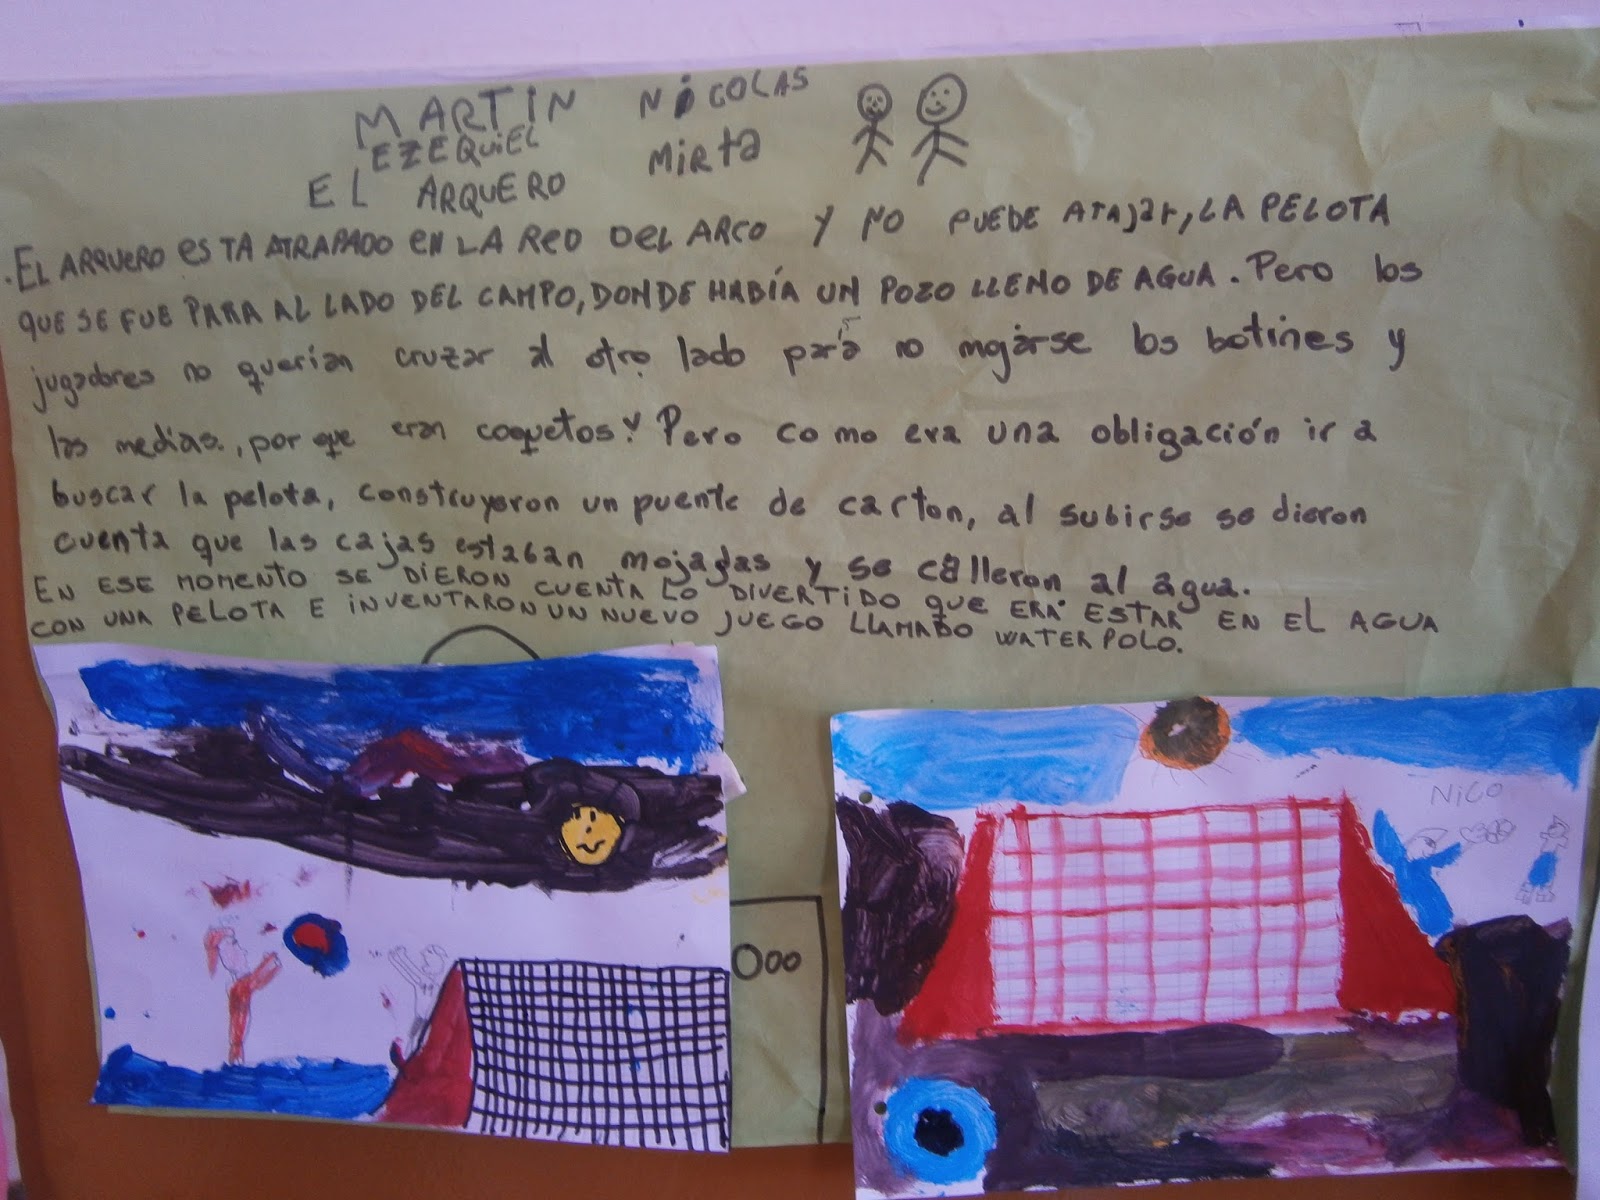 MARTIN NiCOLAS
EZEQUiEL MirTa
EL ARQUERO
.EL ARQUERO esTA ATRAPADO eN LA ReD DeL ARCO Y NO PUEDE ATAJar, LA PELOTA
QUE SE FUE PARA AL LADO DEL CAMPO, DONDE HABÍA UN POZO LLENO DE AGUA. Pero los
jugadores no querían cruzar al otro lado para no mojarse los botines y
las medias., por que eran coquetos! Pero como era una obligación ir a
buscar la pelota, construyeron un puente de carton, al subirse se dieron
cuenta que las cajas estaban mojadas y se calleron al agua.
EN ESE MOMENTO SE DIERON CUENTA LO DIVERTIDO QUE ERA ESTAR EN EL AGUA
CON UNA PELOTA E INVENTARON UN NUEVO JUEGO LLAMADO WATER POLO.
NiCO